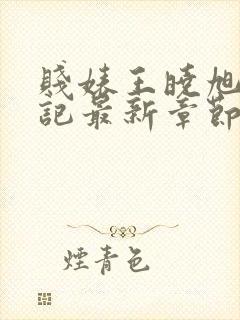 賤婊王曉旭
記最新章節
煙青色